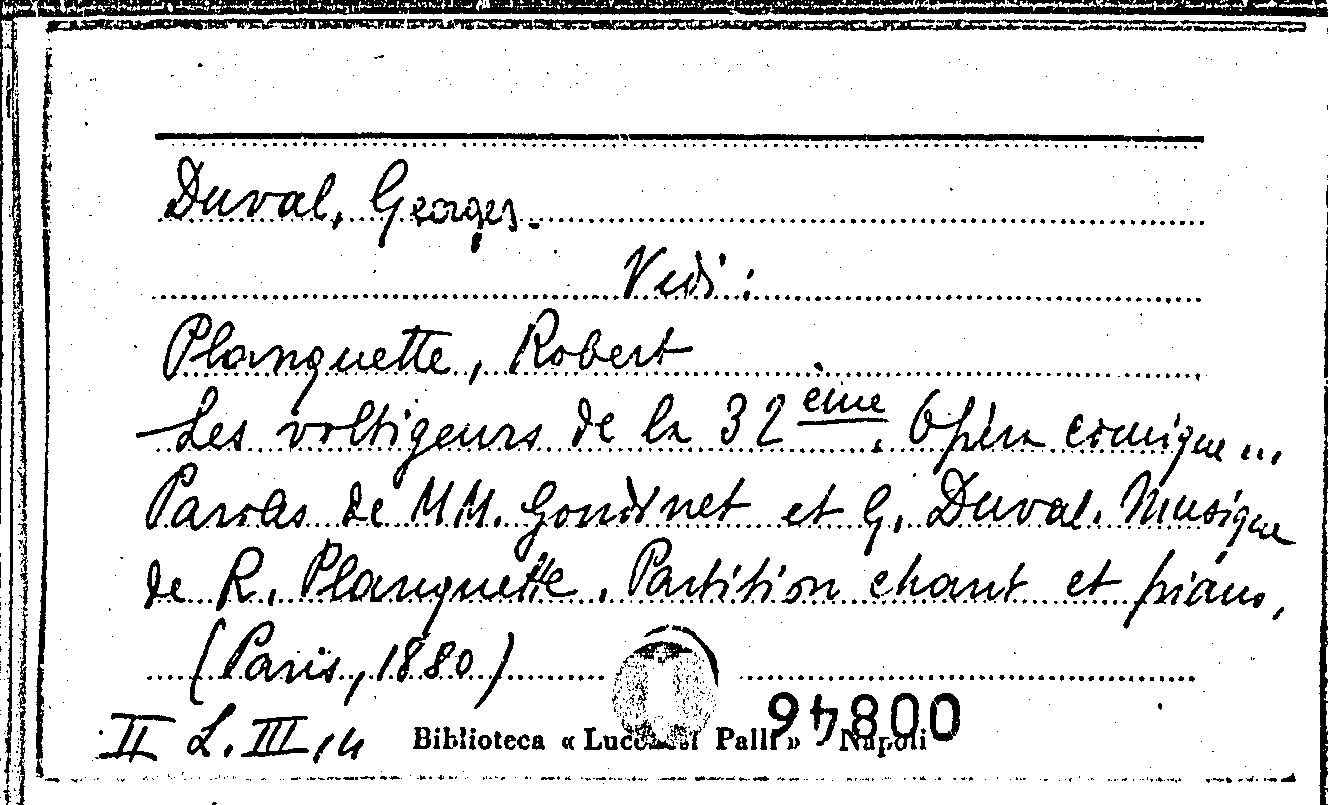 Duval, Georges.
Vedi:
Planquette, Robert
Les voltigeurs de la 32 ème. Opéra comique...
Paroles de MM. Gondinet et G. Duval. Musique
de R. Planquette. Partition chant et piano,
(Paris, 1880)
II L. III, 14
Biblioteca « Lucchesi Palli » Napoli
00846